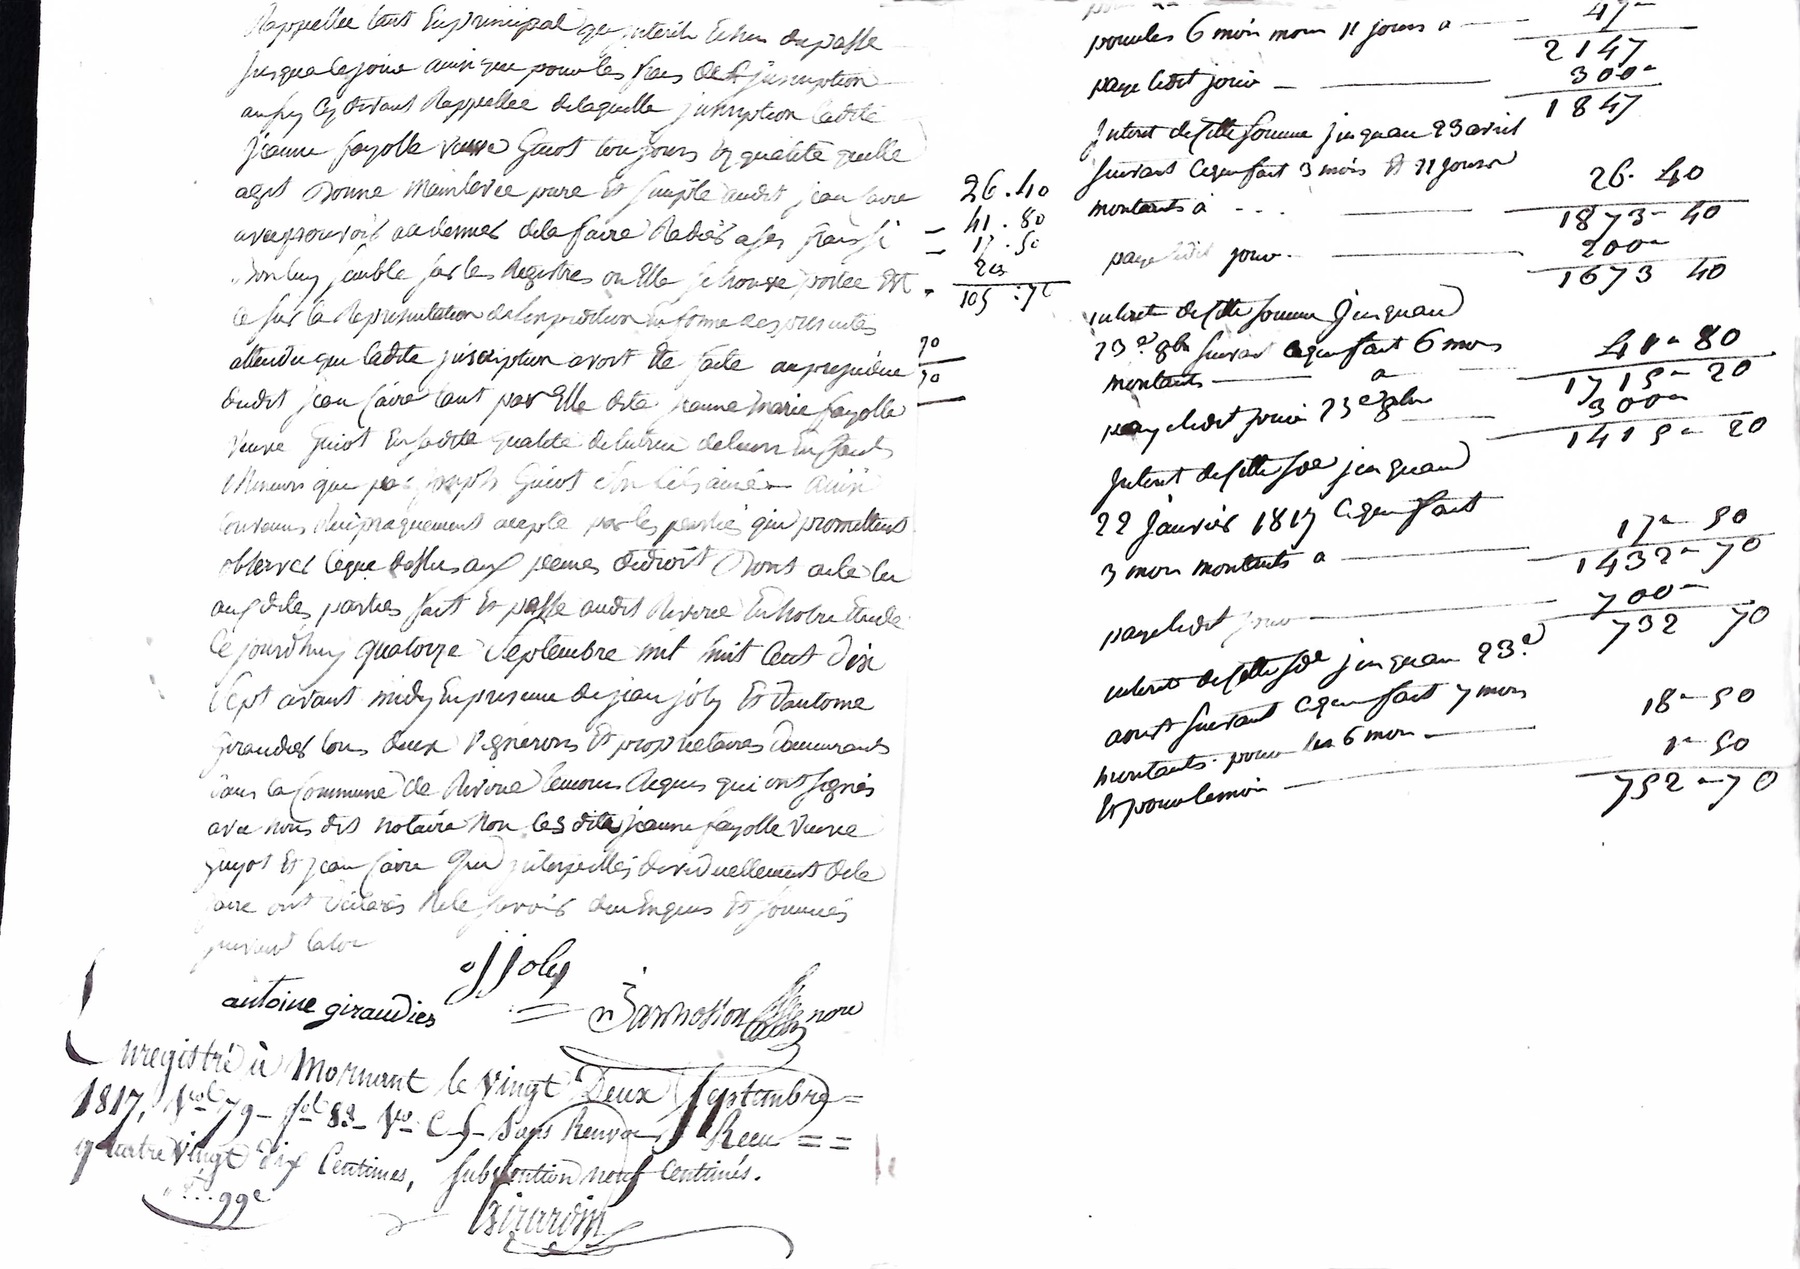 Rappellée tant En principal qu'interets Echus du passé
Jusqua ce jour ainsi que pour les frais de l'jnscription
aussy Cy devant Rappellée de laquelle jnscription ladite
Jeanne fayolle veuve Guiot toujours Ez qualité quelle
agit Donne Mainlevée pure Et simple audit jean faure
avec pouvoir au dernier de la faire Radier a ses frais si
Bon luy semble sur les Registres ou Elle se trouve portée Et
ce sur la Representation de l'expedition En forme des presentes
attendu que ladite jnscription avoit Eté faite au prejudice
dudit jean faure tant par Elle dite jeanne Marie fayolle
veuve Guiot En sadite qualité de tutrice de Leurs Enfants
Mineurs que par joseph Guiot son fils ainé Ainsi
Convenu Reciproquement accepté par les parties qui promettent
observer ceque dessus aux peines de droit Dont acte lu
aux dites parties fait Et passé audit Riverie En Notre Etude
Ce jourd'huy quatorze Septembre mil huit Cent Dix
Sept avant midy En presence de jean joly Et d'antoine
Giraudier tous deux vignerons Et proprietaires Demeurants
Dans la Commune de Riverie temoins Requis qui ont signés
avec Nous dit notaire Non les dits jeanne fayolle Veuve
guyot Et jean faure Qui jnterpellés dividuellement de le
faire ont Déclarés Ne le scavoir de ce Enquis Et sommés
suivant la loi
jjoly
antoine giraudier
nore
Enregistré à Mornant le vingt Deux Septembre
1817, Vol 79 - fol 88 - Vo C 5 - Sans Renvoi Recu
quatre vingt dix Centimes, subvention neuf Centimes.
99c
Girardin
26.40
41.80
17.50
20
105
90
90
47
pour les 6 mois moins 11 jours a
2147
paye ledit jour 300
1847
Interet de cette somme jusquau 23 avril
suivant ce qui fait 3 mois Et 11 jours
montants a 26. 40
1873 - 40
paye ledit jour 200
1673 40
interet de cette somme Jusquau
23e 8bre suivant ce qui fait 6 mois
montants a 41 - 80
1715 - 20
paye ledit jour 23e 8bre 300
1415 - 20
Interet de cette sme jusquau
22 Janvier 1817 Ce qui fait
3 mois montants a 17 - 50
1432 - 70
paye ledit jour 700
732 70
interet de cette sme jusquau 23e
aoust suivant ce qui fait 7 mois
montants pour les 6 mois 18 - 50
Et pour le mois 1 - 50
752 - 70